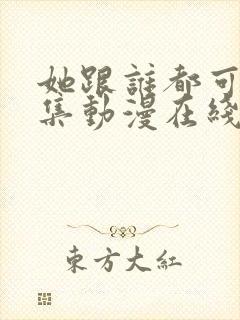 她跟誰都可
集動漫在綫
東方大紅